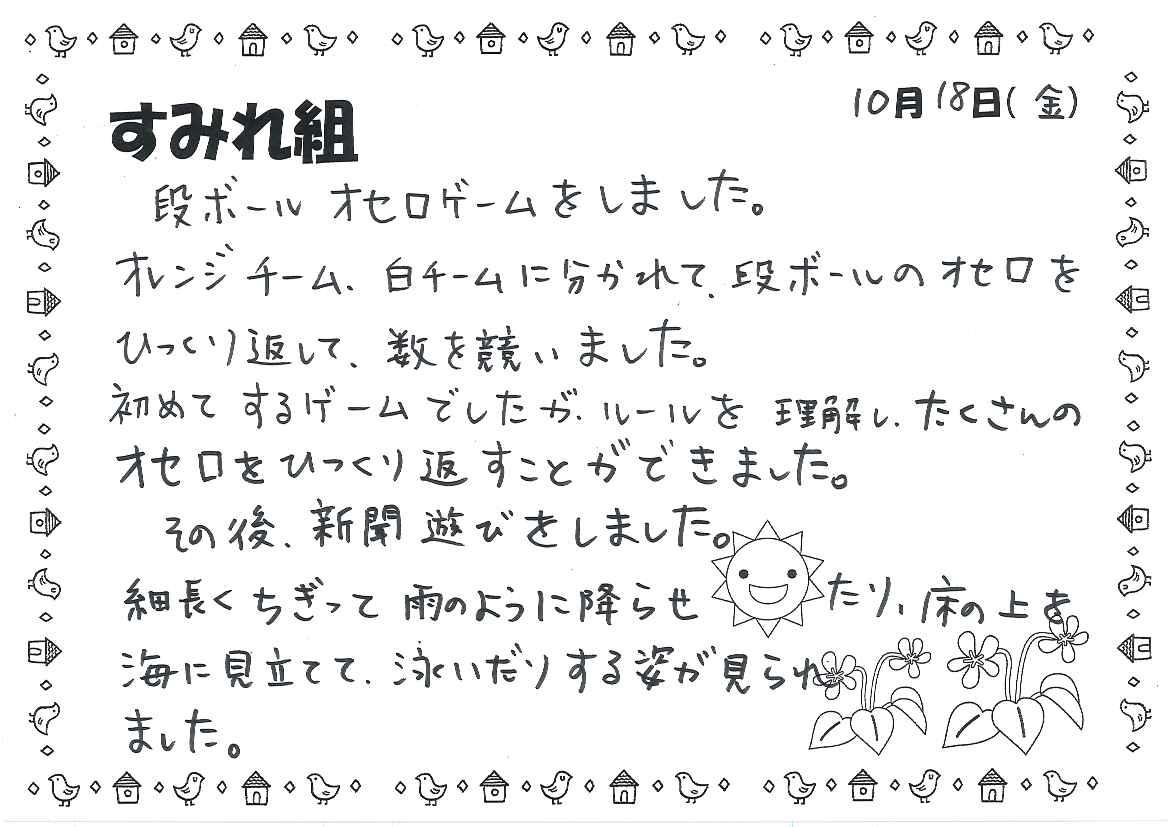 10月18日(金)
すみれ組
段ボールオセロゲームをしました。
オレンジチーム、白チームに分かれて、段ボールのオセロを
ひっくり返して、数を競いました。
初めてするゲームでしたが、ルールを理解し、たくさんの
オセロをひっくり返すことができました。
その後、新聞遊びをしました。
細長くちぎって雨のように降らせたり、床の上を
海に見立てて、泳いだりする姿が見られ
ました。